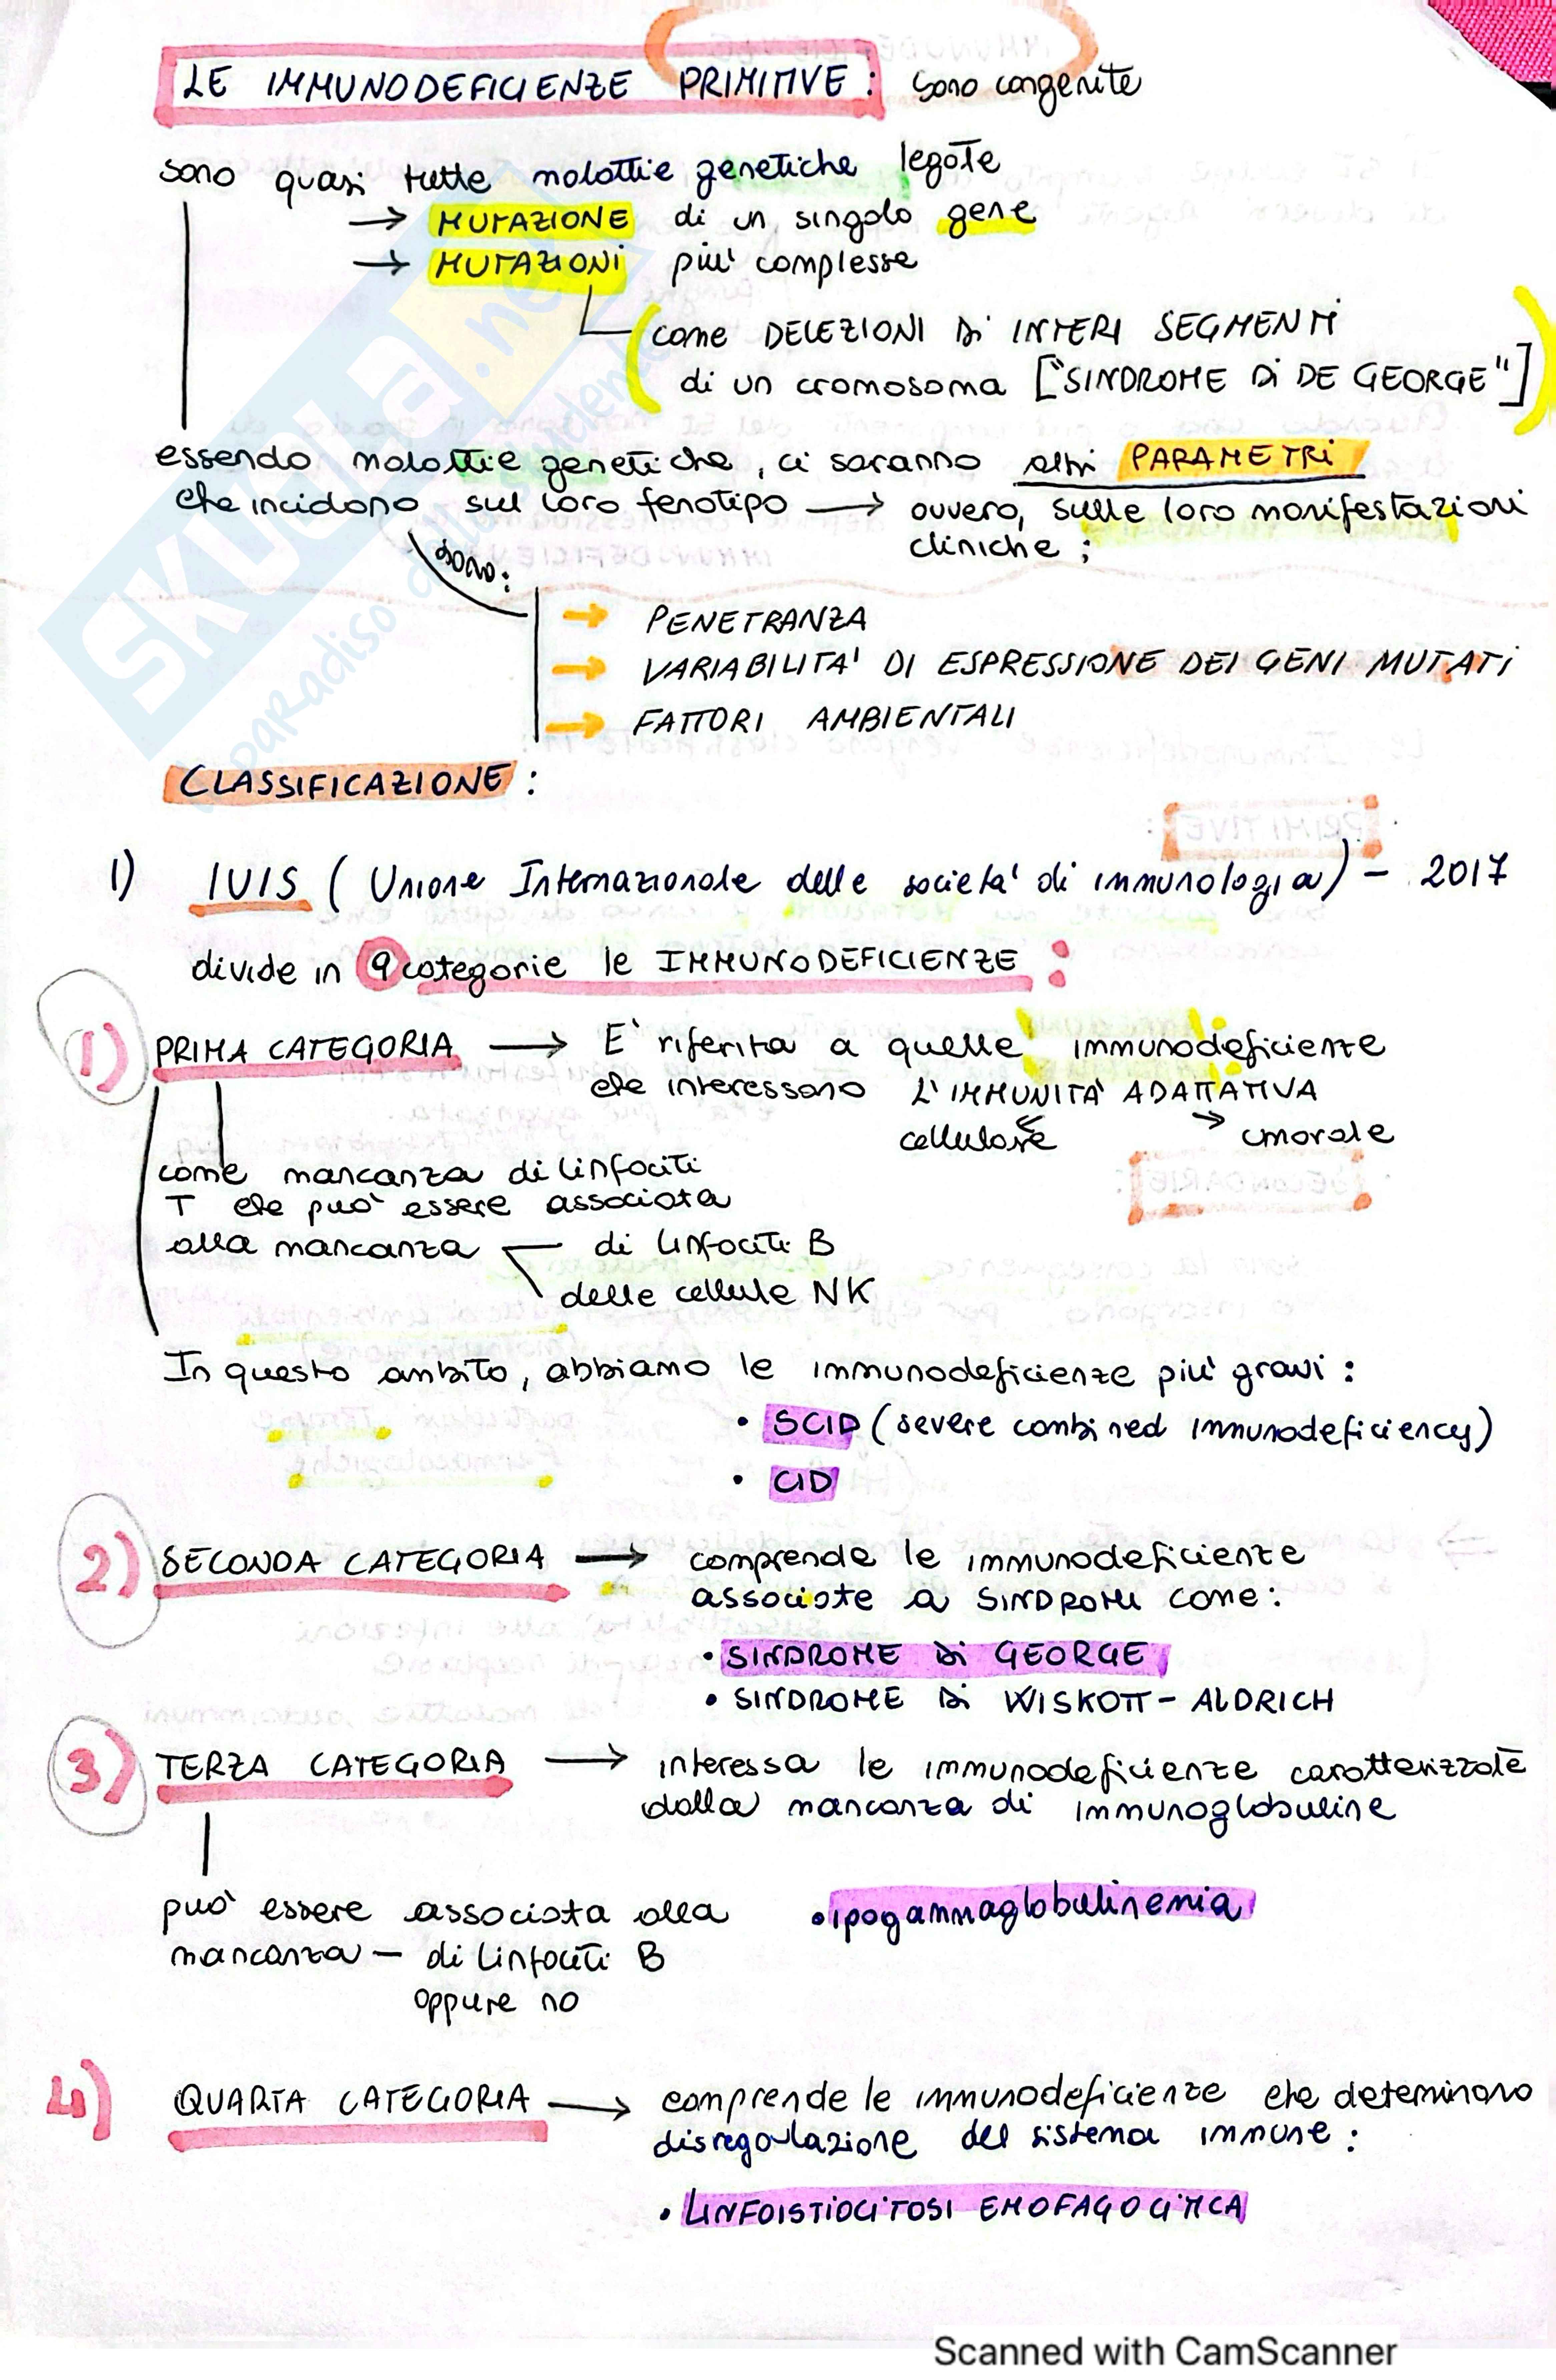 LE IMMUNODEFICIENZE PRIMITIVE: sono congenite
sono quasi tutte malattie genetiche legate
→ MUTAZIONE di un singolo gene
→ MUTAZIONI piu' complesse
(come DELEZIONI Di INTERI SEGMENTI
di un cromosoma ["SINDROME Di DE GEORGE"])
essendo malattie genetiche, ci saranno altri PARAMETRi
che incidono sul loro fenotipo → ovvero, sulle loro manifestazioni
cliniche;
sono:
→ PENETRANZA
→ VARIABILITA' DI ESPRESSIONE DEI GENI MUTATi
→ FATTORI AMBIENTALI
CLASSIFICAZIONE:
1) IUIS (Unione Internazionale delle societa' di immunologia) - 2017
divide in 9 categorie le IMMUNODEFICIENZE:
1) PRIMA CATEGORIA → E' riferita a quelle immunodeficienze
che interessano L'IMMUNITA' ADATTATIVA
cellulare → umorale
come mancanza di linfociti
T che può essere associata
alla mancanza di linfociti B
delle cellule NK
In questo ambito, abbiamo le immunodeficienze piu' gravi:
• SCID (severe combined immunodeficiency)
• CID
2) SECONDA CATEGORIA → comprende le immunodeficienze
associate a SINDROMI come:
• SINDROME Di GEORGE
• SINDROME Di WISKOTT-ALDRICH
3) TERZA CATEGORIA → interessa le immunodeficienze caratterizzate
dalla mancanza di immunoglobuline
può essere associata alla
mancanza - di linfociti B
oppure no
• ipogammaglobulinemia
4) QUARTA CATEGORIA → comprende le immunodeficienze che determinano
disregolazione del sistema immune:
• LINFOISTIOCITOSI EMOFAGOCITICA
SKUOLA.net
paradiso dello studente
Scanned with CamScanner